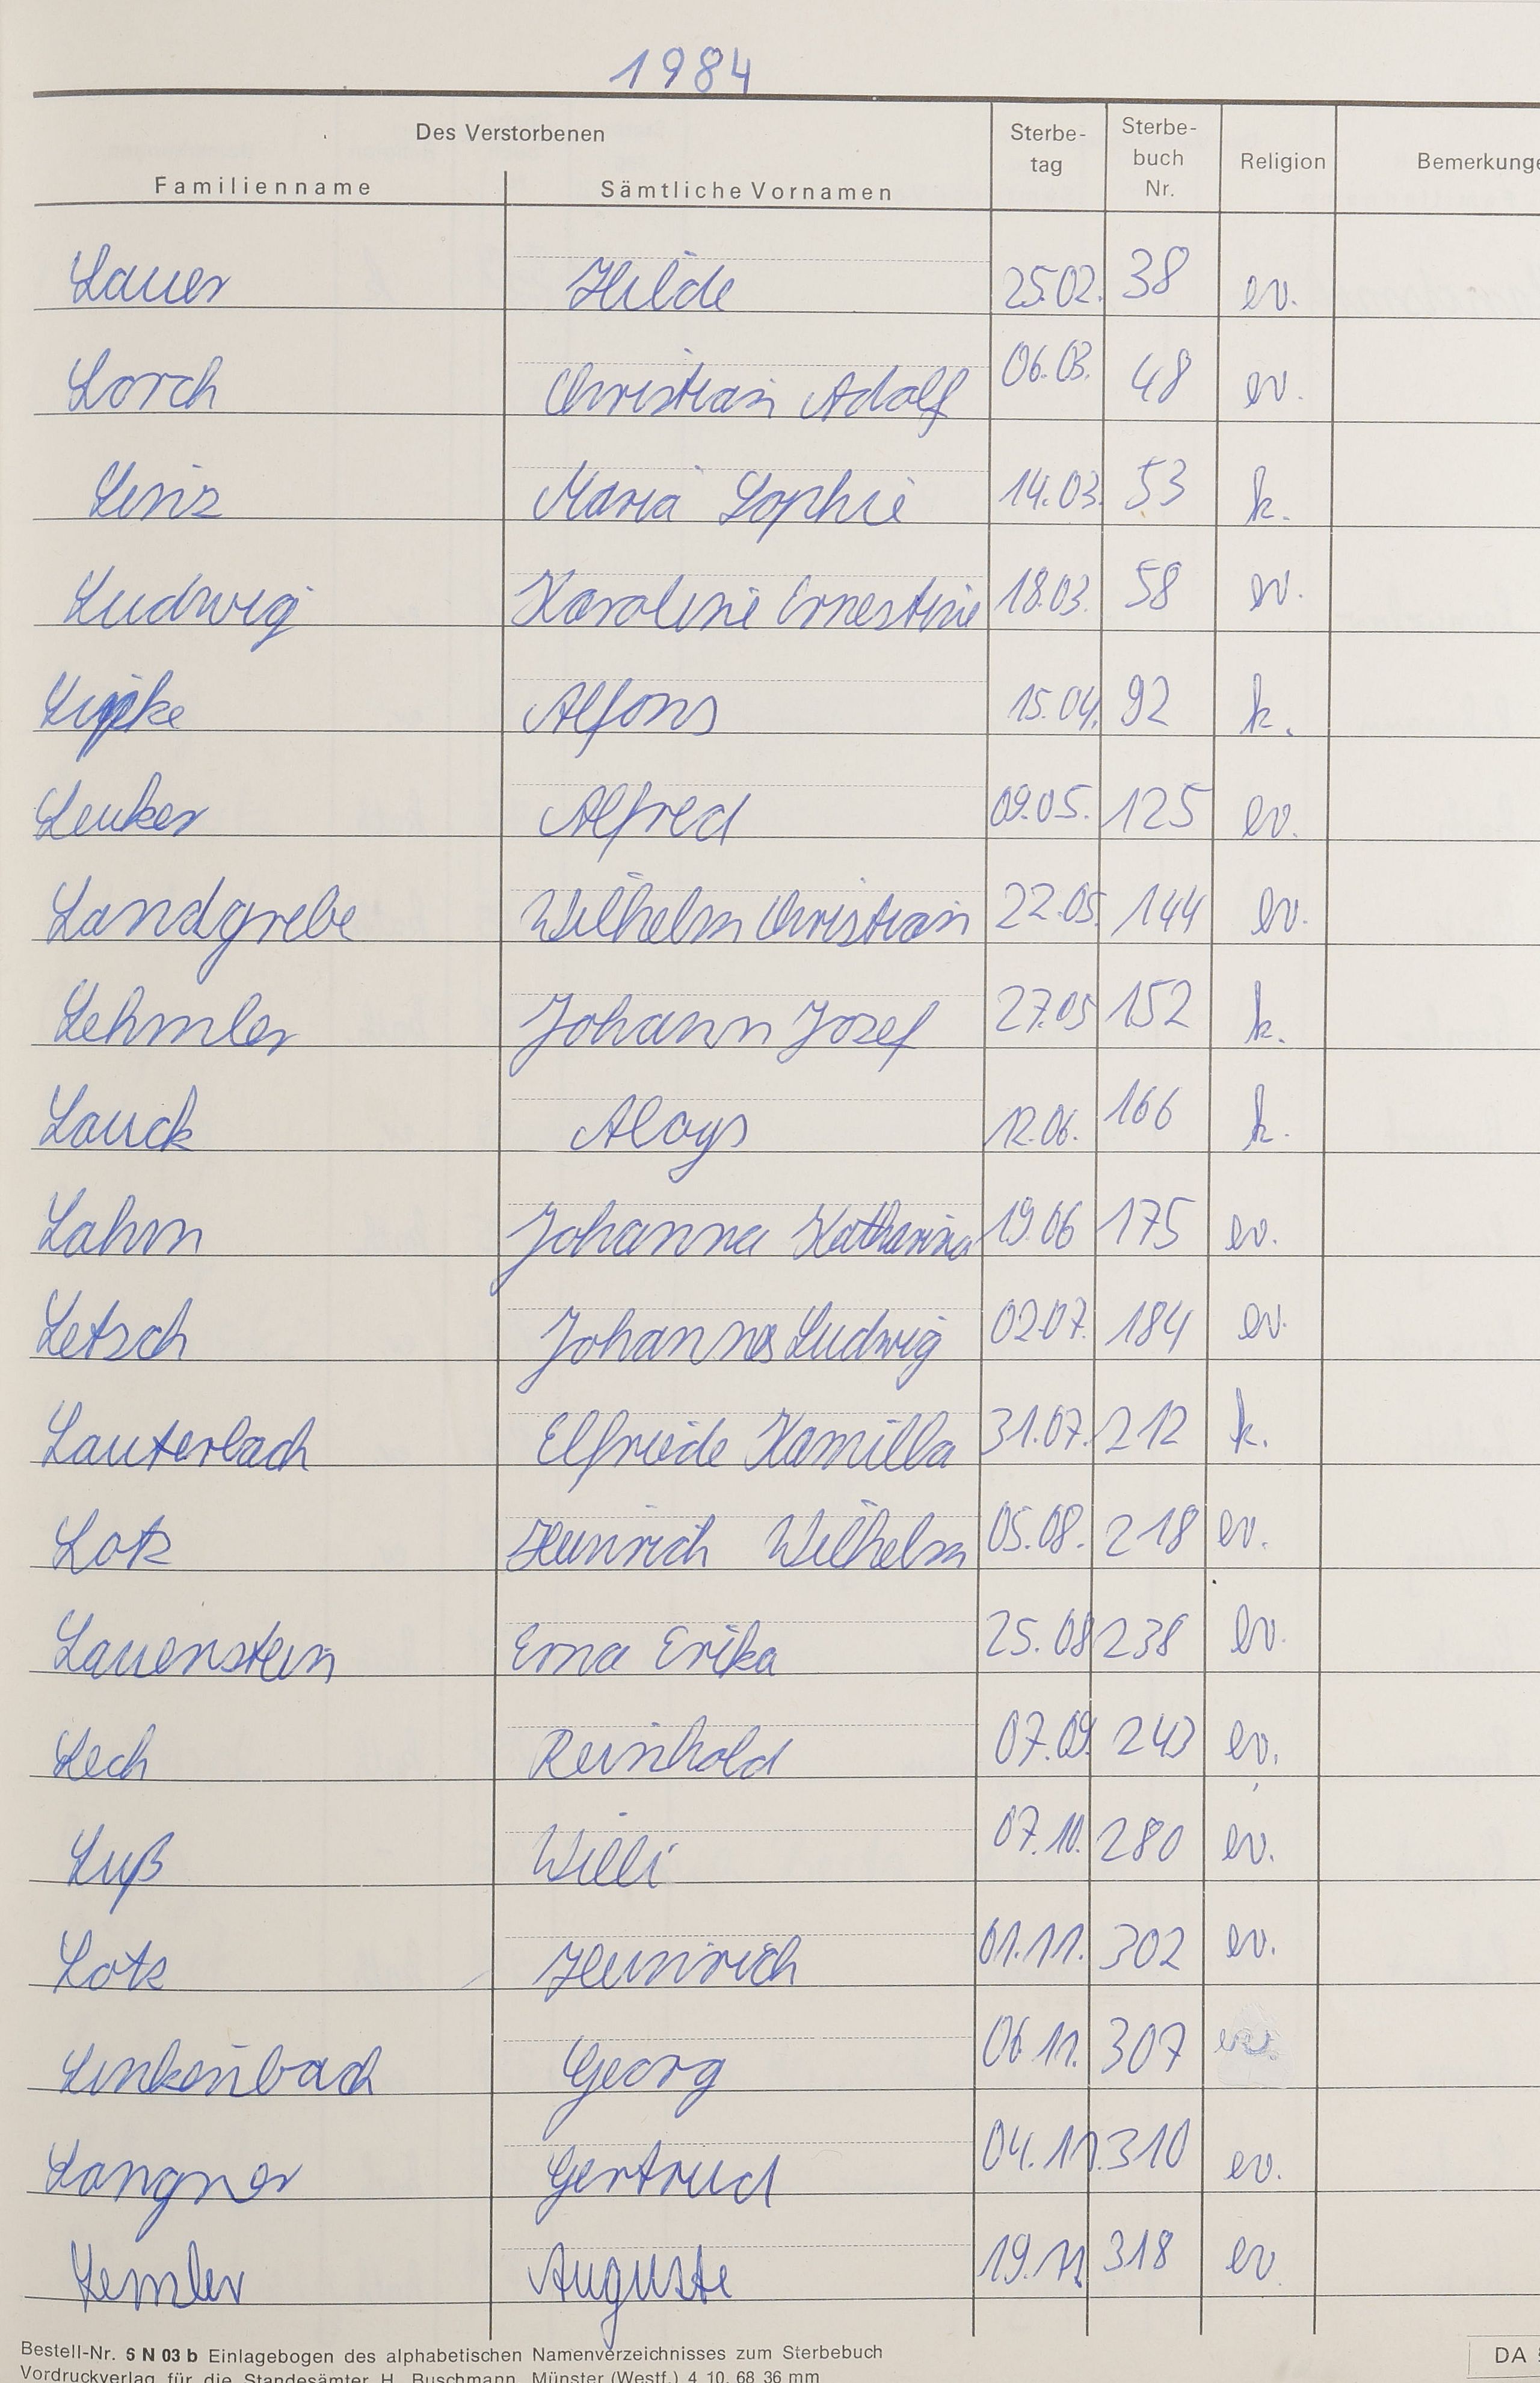 1984
Des Verstorbenen
Familienname Sämtliche Vornamen Sterbe-tag Sterbe-buch Nr. Religion Bemerkunge
Lauer Hilde 25.02. 38 ev.
Lorch Christian Adolf 06.03. 48 ev.
Linz Maria Sophie 14.03. 53 k.
Ludwig Karoline Ernestine 18.03. 58 ev.
Alfons 15.04. 92 k.
Leuker Alfred 09.05. 125 ev.
Landgrebe Wilhelm Christian 22.05. 144 ev.
Lehmler Johann Josef 27.05 152 k.
Lauck Aloys 12.06. 166 k.
Lahm Johanna Katharina 19.06 175 ev.
Letsch Johannes Ludwig 02.07. 184 ev.
Lauterbach Elfriede Kamilla 31.07. 212 k.
Lotz Heinrich Wilhelm 05.08. 218 ev.
Lauenstein Erna Erika 25.08 238 ev.
Lech Reinhold 07.09. 243 ev.
Luß Willi 07.10. 280 ev.
Lotz Heinrich 01.11. 302 ev.
Linkenbach Georg 06.11. 307
Langner Gertrud 04.11. 310 ev.
Lemler Auguste 318 ev.
Bestell-Nr. 6 N 03 b Einlagebogen des alphabetischen Namenverzeichnisses zum Sterbebuch
DA
Vordruckverlag für die Standesämter H. Buschmann, Münster (Westf.) 4 10. 68 36 mm